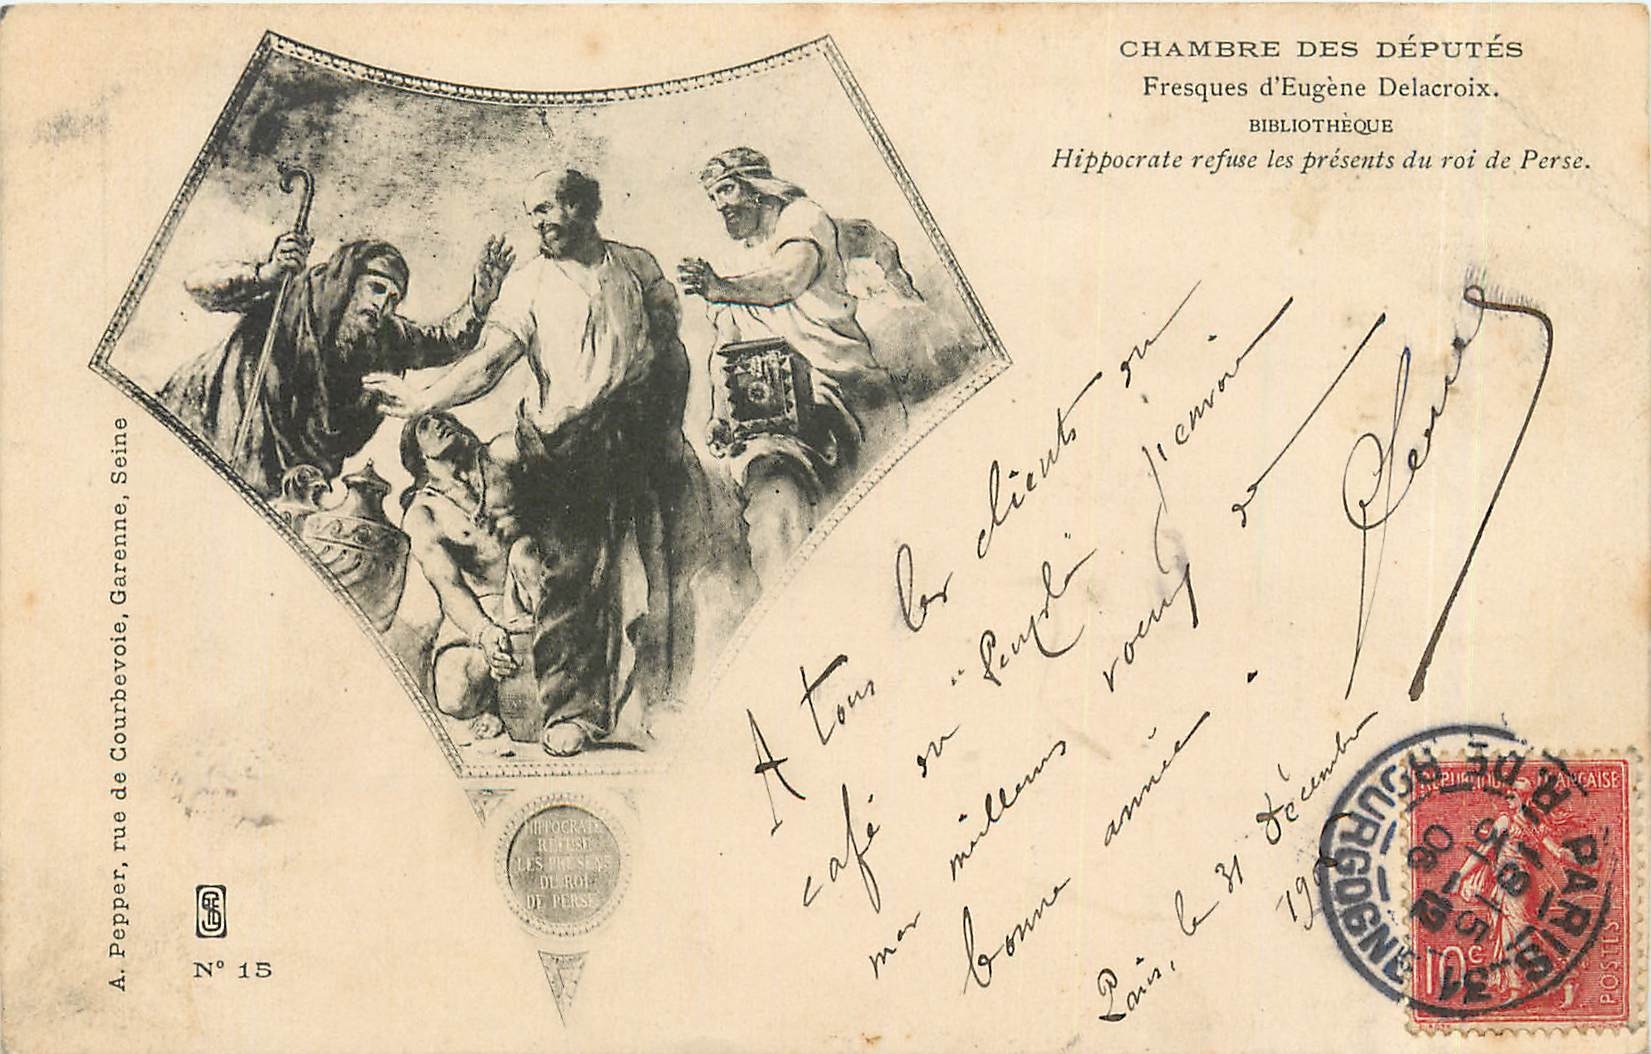 CHAMBRE DES DÉPUTÉS
Fresques d'Eugène Delacroix.
BIBLIOTHÈQUE
Hippocrate refuse les présents du roi de Perse.
A. Pepper, rue de Courbevoie, Garenne, Seine
N° 15
HIPPOCRATE
REFUSE
LES PRESENS
DU ROI
DE PERSE
A tous les clients du
café du " " j'envoie
mes meilleurs voeux de
bonne année.
Paris, le 31 décembre
190
RÉPUBLIQUE FRANÇAISE
10 c
POSTES
PARIS - 31
R. DE BOURGOGNE
18 15
31 - 12
06